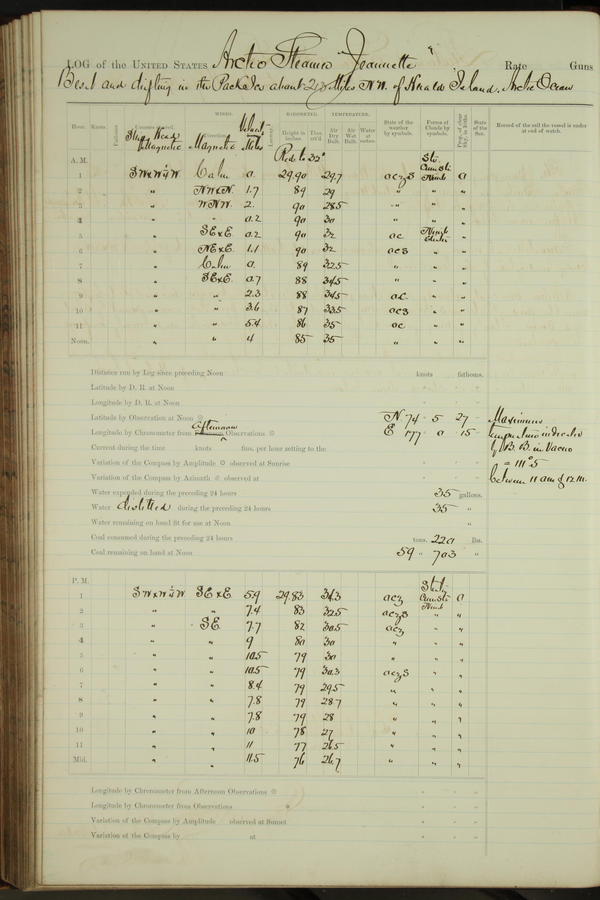 LOG of the UNITED STATES Arctic Steamer Jeannette Rate Guns
Beset and drifting in the Pack Ice about 213 Miles NW. of Herald Island. Arctic Ocean
WINDS. BAROMETER. TEMPERATURE.
Hour. Knots. Fathoms. Courses steered. Ship's Head Magnetic Direction. Magnetic Velocity Miles Leeway. Height in inches. Ther. att'd. Air Dry Bulb. Air Wet Bulb. Water at surface. State of the weather by symbols. Forms of Clouds by symbols. Prop. of clear Sky, in 10ths. State of the Sea. Record of the sail the vessel is under at end of watch.
A. M. Red. to 32° Str.
1 SWxW½W Calm 0. 29.90 29.7 oczs Cum Str Nimb 0
2 " NWxN. 1.7 89 29 " " "
3 " WNW. 2. 90 28.5 " " "
4 " " 0.2 90 30 " " "
5 " SExE 0.2 90 32 oc Nimb "
6 " NExE. 1.1 90 32 ocs " "
7 " Calm 0. 89 32.5 " " "
8 " SExE. 0.7 88 34.5 " " "
9 " " 2.3 88 34.5 oc. " "
10 " " 3.6 87 33.5 ocs " "
11 " " 5.4 86 35 oc " "
Noon. " " 4 85 35 " " "
Distance run by Log since preceding Noon knots fathoms.
Latitude by D. R. at Noon
Longitude by D. R. at Noon
Latitude by Observation at Noon N 74 5 27
Longitude by Chronometer from Afternoon Observations E 177 0 15
Maximum
temperature indicated
by B. B. in Vacuo
= 111°5
between 11 am & 12 m.
Current during the time knots fms. per hour setting to the
Variation of the Compass by Amplitude observed at Sunrise
Variation of the Compass by Azimuth observed at
Water expended during the preceding 24 hours 35 gallons.
Water distilled during the preceding 24 hours 35 "
Water remaining on hand fit for use at Noon "
Coal consumed during the preceding 24 hours tons. 220 lbs.
Coal remaining on hand at Noon 59 " 703 "
P. M. Strat.
1 SWxW½W SExE 5.9 29.83 34.3 ocz Cum Str Nimb 0
2 " " 7.4 83 32.5 oczs " "
3 " SE 7.7 82 30.5 ocz " "
4 " " 9 80 30 " " "
5 " " 10.5 79 30 " " "
6 " " 10.5 79 30.3 oczs " "
7 " " 8.4 79 29.5 " " "
8 " " 7.8 79 28.7 " " "
9 " " 7.8 79 28 " " "
10 " " 10 78 27 " " "
11 " " 11 77 26.5 " " "
Mid. " " 11.5 76 26.7 " " "
Longitude by Chronometer from Afternoon Observations
Longitude by Chronometer from Observations
Variation of the Compass by Amplitude observed at Sunset
Variation of the Compass by at